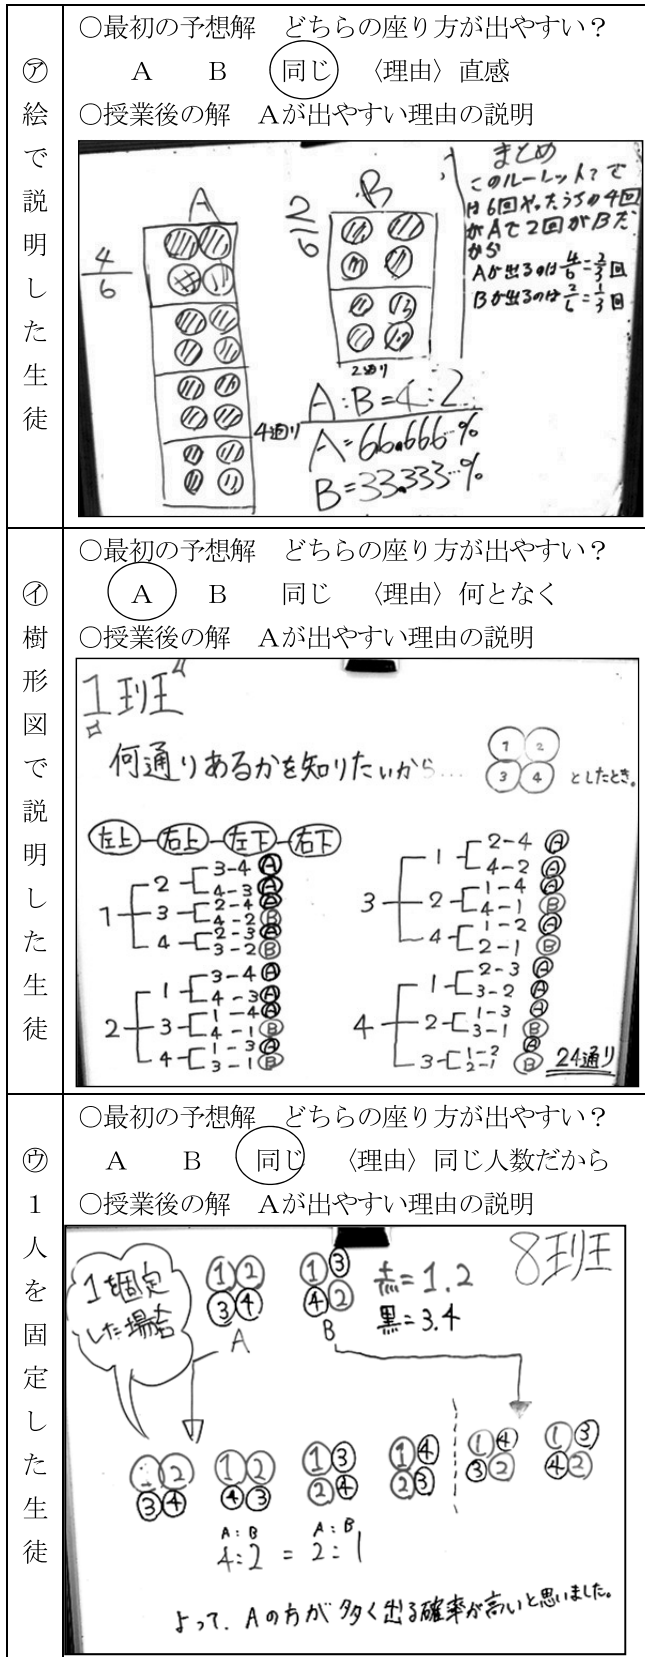 ㋐絵で説明した生徒
○最初の予想解　どちらの座り方が出やすい？
A　B　同じ　〈理由〉直感
○授業後の解　Aが出やすい理由の説明
A
B
4/6
2/6
4通り
2通り
A:B=4:2
A=66.666…%
B=33.333…%
まとめ
このルーレット?で
は6回やったうちの4回
がAで2回がBだ
から
Aが出るのは4/6=2/3回
Bが出るのは2/6=1/3回
㋑樹形図で説明した生徒
○最初の予想解　どちらの座り方が出やすい？
A　B　同じ　〈理由〉何となく
○授業後の解　Aが出やすい理由の説明
1班
何通りあるかを知りたいから…
1 2
3 4
としたとき。
左上－右上－左下－右下
1
2
3-4 A
4-3 A
3
2-4 A
4-2 B
4
2-3 A
3-2 B
2
1
3-4 A
4-3 A
3
1-4 A
4-1 B
4
1-3 A
3-1 B
3
1
2-4 A
4-2 A
2
1-4 A
4-1 B
4
1-2 A
2-1 B
4
1
2-3 A
3-2 A
2
1-3 A
3-1 B
3
1-2 A
2-1 B
24通り
㋒1人を固定した生徒
○最初の予想解　どちらの座り方が出やすい？
A　B　同じ　〈理由〉同じ人数だから
○授業後の解　Aが出やすい理由の説明
8班
1を固定
した場合
1 2
3 4
A
1 3
4 2
B
赤=1.2
黒=3.4
1 2
3 4
1 2
4 3
1 3
2 4
1 4
2 3
1 4
3 2
1 3
4 2
A:B　A:B
4:2 = 2:1
よって、Aの方が多く出る確率が高いと思いました。